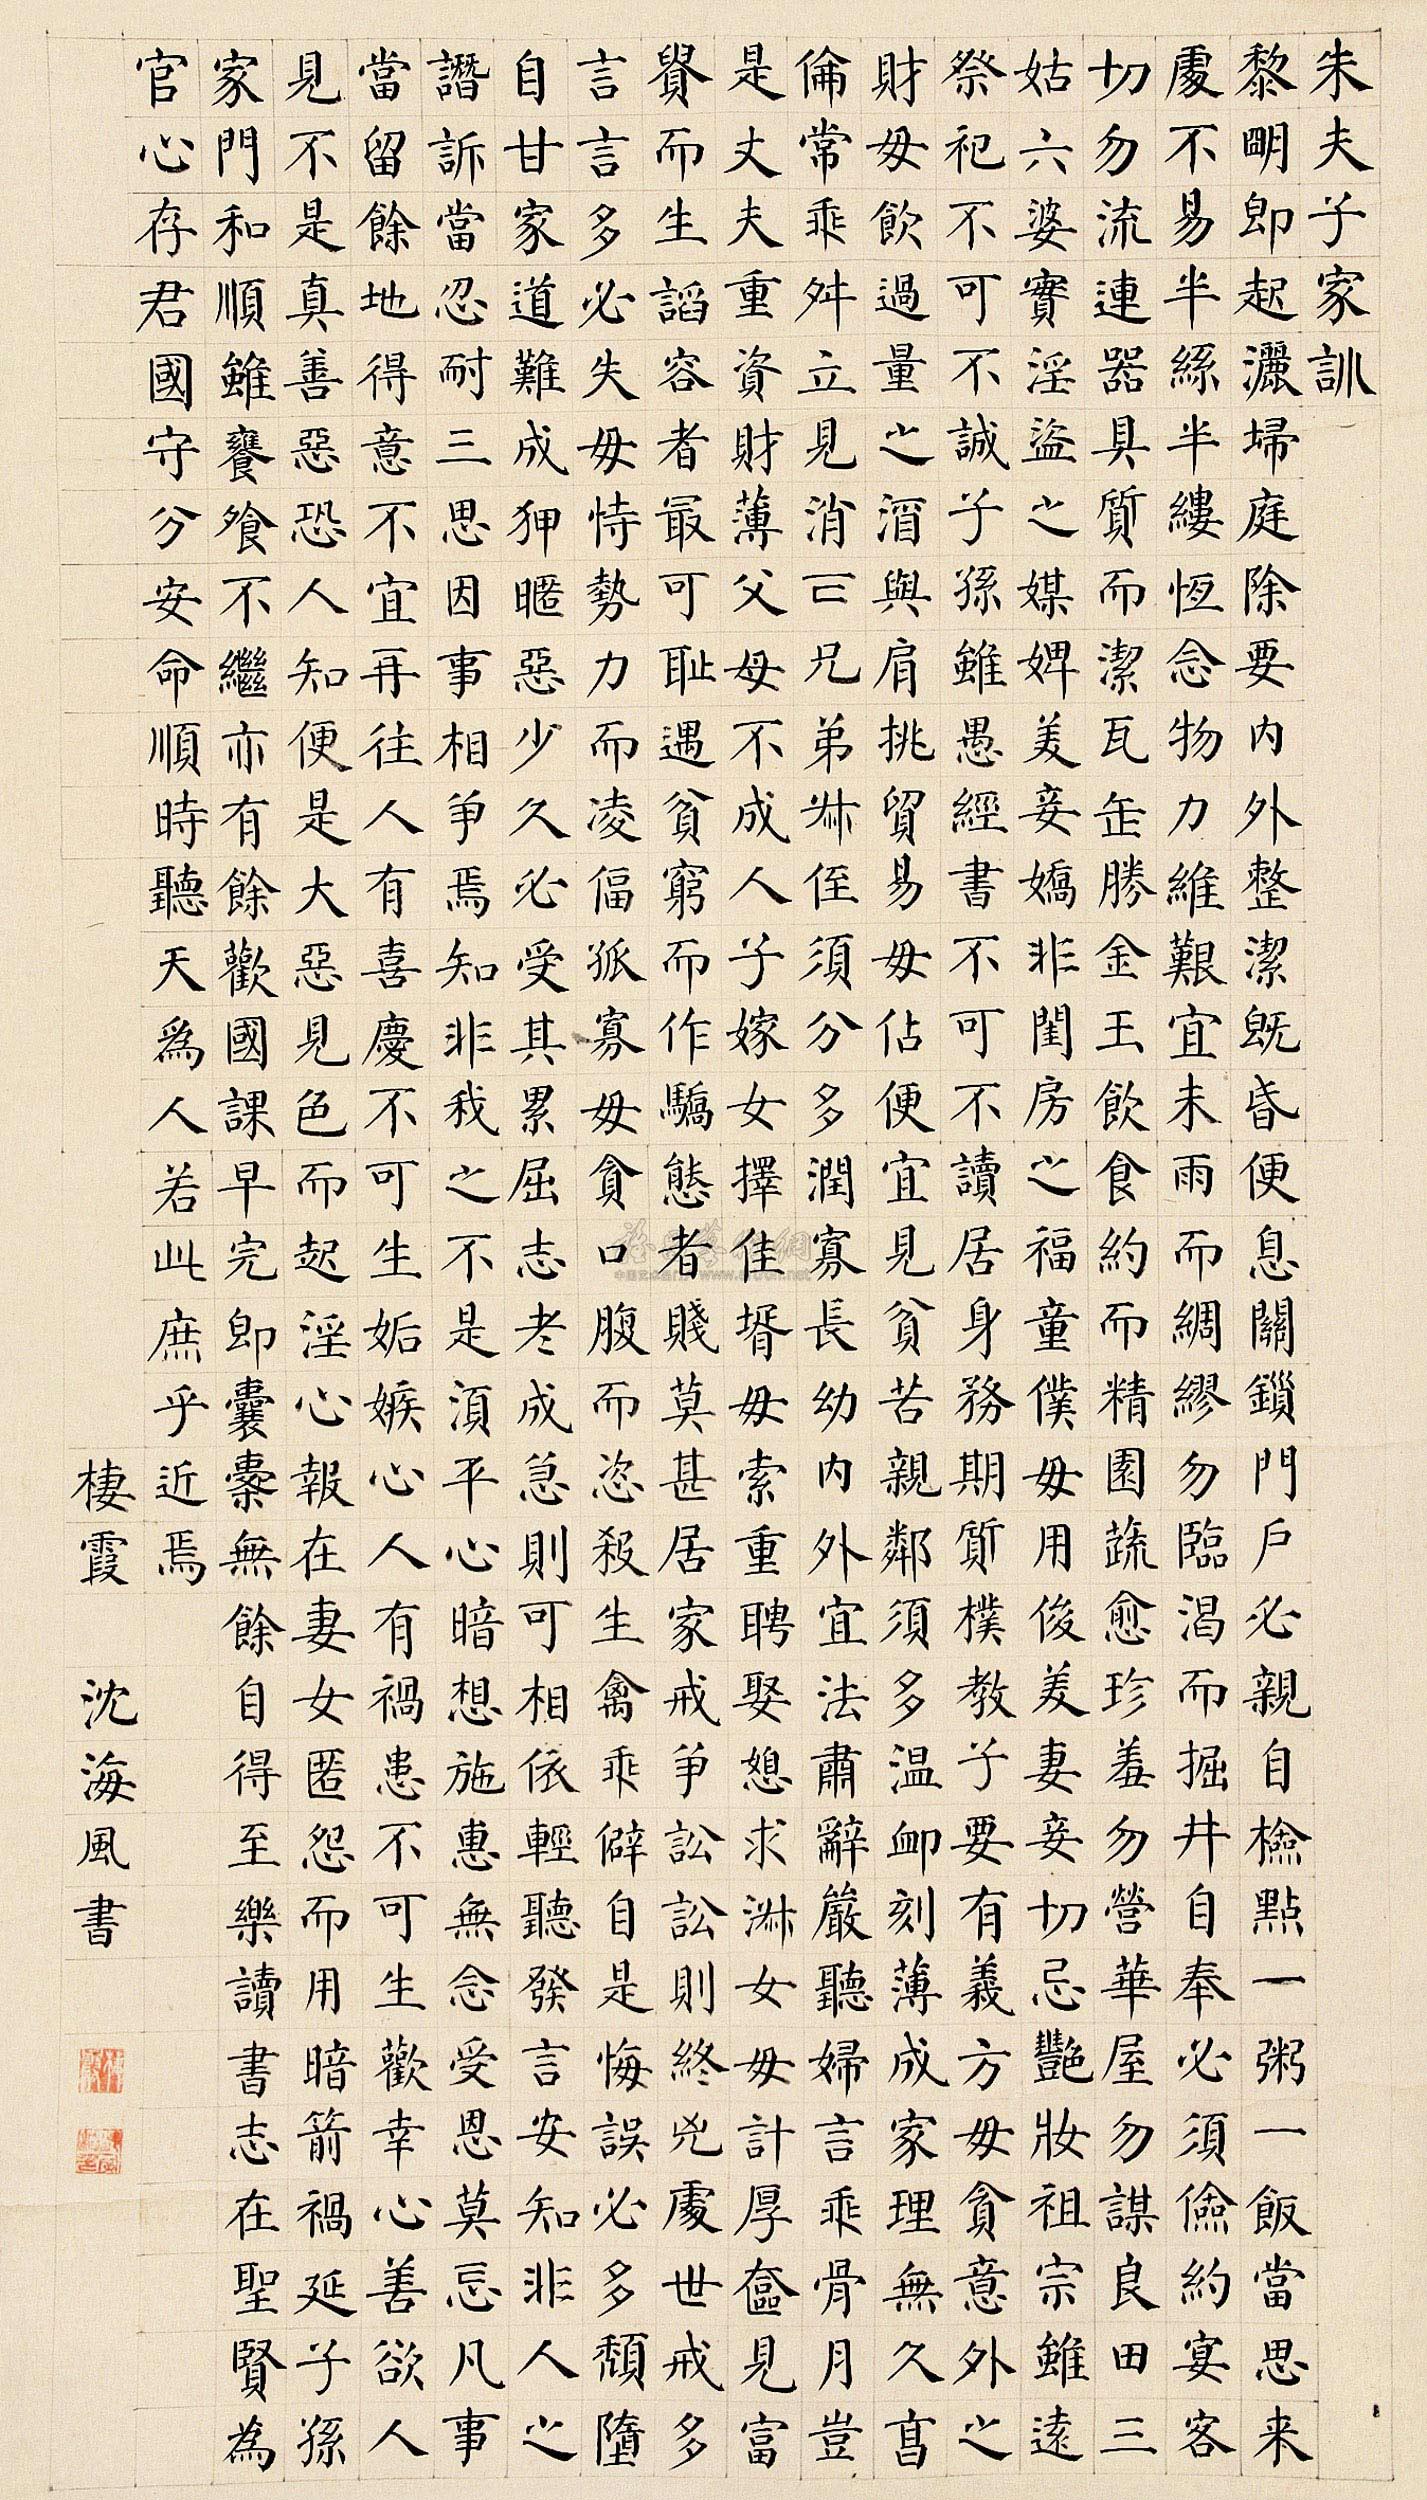 朱夫子家訓
黎明即起灑埽庭除要內外整潔既昏便息關鎖門戶必親自檢點一粥一飯當思来
處不易半絲半縷恆念物力維艱宜未雨而綢繆勿臨渴而掘井自奉必須儉約宴客
切勿流連器具質而潔瓦缶勝金玉飲食約而精園蔬愈珍羞勿營華屋勿謀良田三
姑六婆實淫盜之媒婢美妾嬌非閨房之福童僕毋用俊美妻妾切忌艷妝祖宗雖遠
祭祀不可不誠子孫雖愚經書不可不讀居身務期質樸教子要有義方毋貪意外之
財毋飲過量之酒與肩挑貿易毋佔便宜見貧苦親鄰須多溫卹刻薄成家理無久亯
倫常乖舛立見消亡兄弟叔侄須分多潤寡長幼內外宜法肅辭嚴聽婦言乖骨月豈
是丈夫重資財薄父母不成人子嫁女擇佳壻毋索重聘娶媳求淑女毋計厚奩見富
貴而生諂容者最可恥遇貧窮而作驕態者賤莫甚居家戒爭訟訟則終兇處世戒多
言言多必失毋恃勢力而凌偪孤寡毋貪口腹而恣殺生禽乖僻自是悔誤必多頹墮
自甘家道難成狎暱惡少久必受其累屈志老成急則可相依輕聽發言安知非人之
譖訴當忍耐三思因事相爭焉知非我之不是須平心暗想施惠無念受恩莫忘凡事
當留餘地得意不宜再往人有喜慶不可生妬嫉心人有禍患不可生歡幸心善欲人
見不是真善惡恐人知便是大惡見色而起淫心報在妻女匿怨而用暗箭禍延子孫
家門和順雖饔飧不繼亦有餘歡國課早完即囊橐無餘自得至樂讀書志在聖賢為
官心存君國守分安命順時聽天為人若此庶乎近焉
棲霞 沈海風書